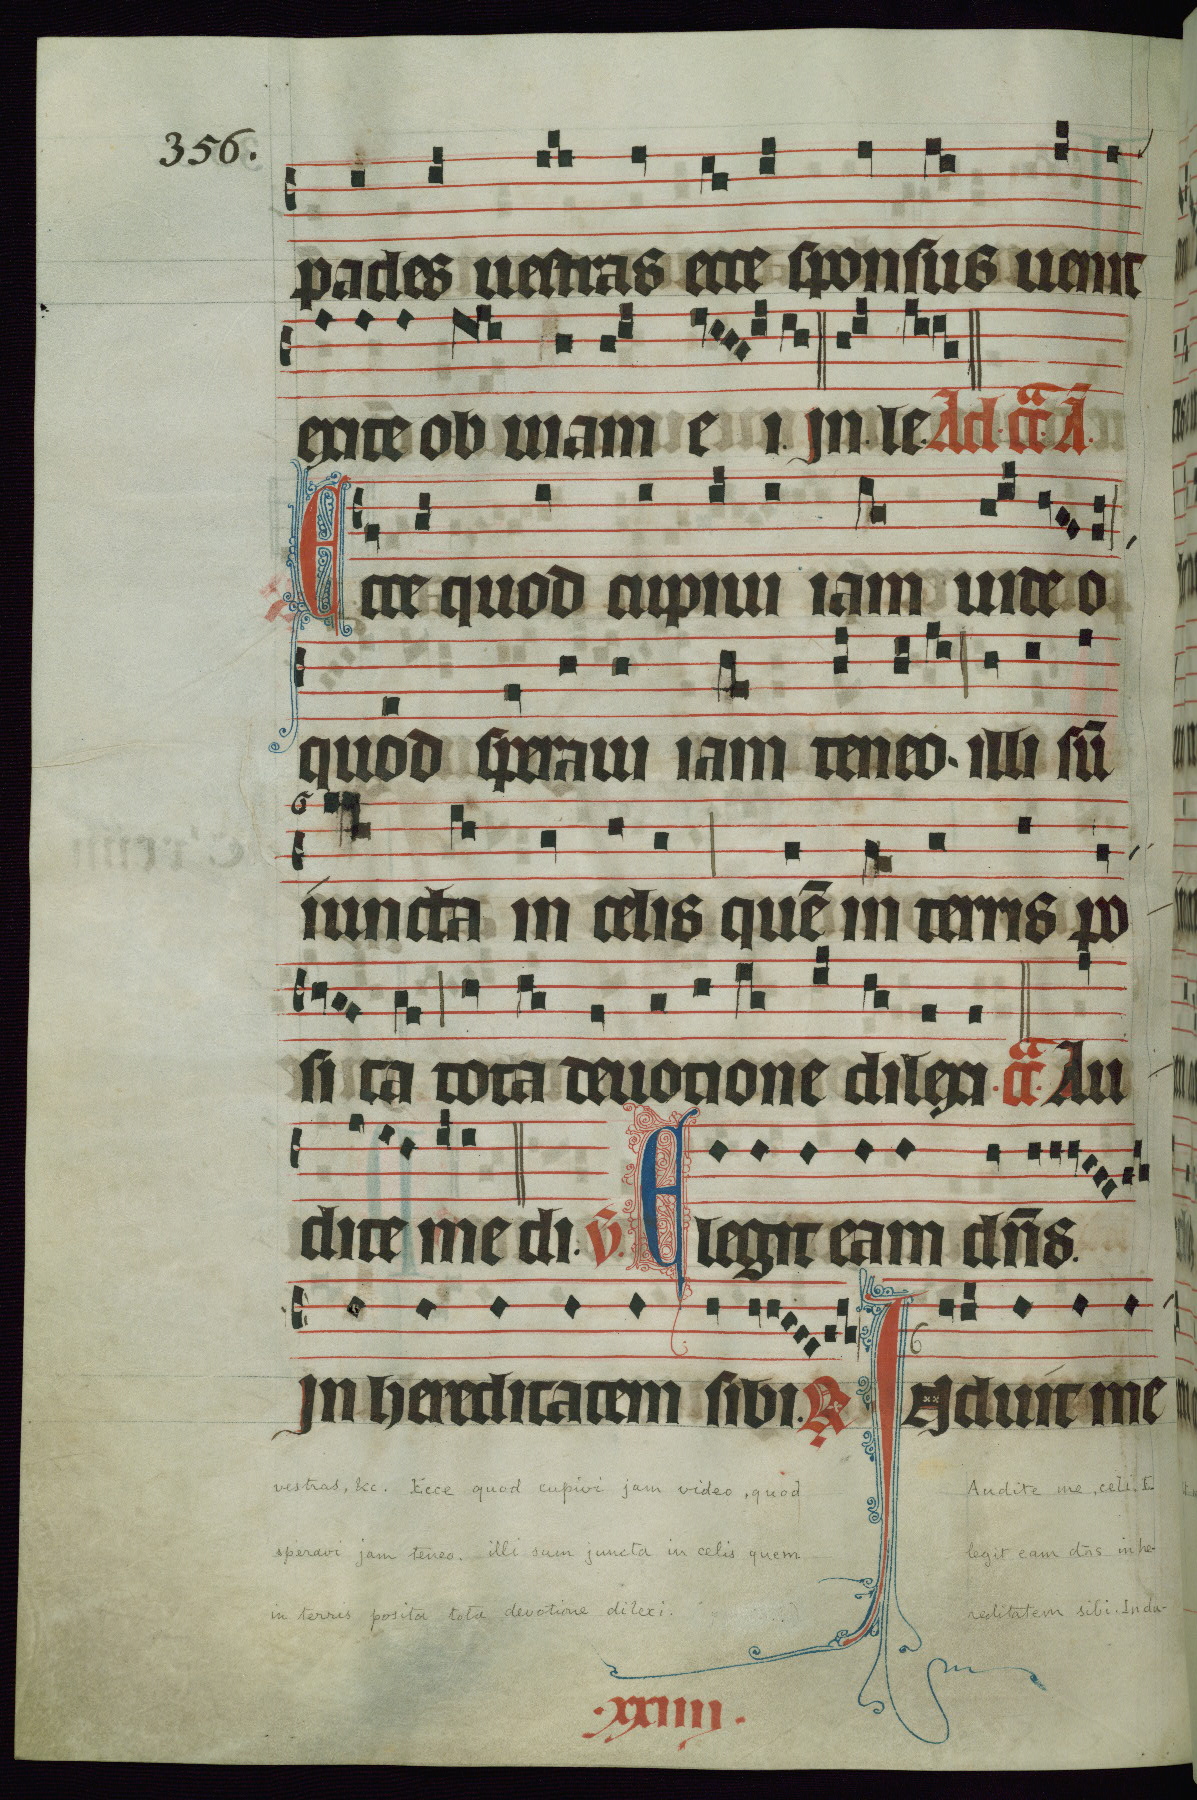 356.
pades uestras ecce sponsus uenit
exite ob uiam e i. Jn. le. Ad. cā. Ā.
Ecce quod cupiui iam uide o
quod speraui iam teneo. illi sū
6
iuncta in celis quē in terris po
si ta tota deuotione dilexi. cā. Au
dite me di. v̄. Elegit eam dn̄s.
6
Jn hereditatem sibi. R INduit me
vestras, &c. Ecce quod cupivi jam video, quod
speravi jam teneo. illi sum juncta in celis quem
in terris posita tota devotione dilexi.
Audite me, celi. E
legit eam dn̄s in he-
reditatem sibi. Indu-
.xxiiii.